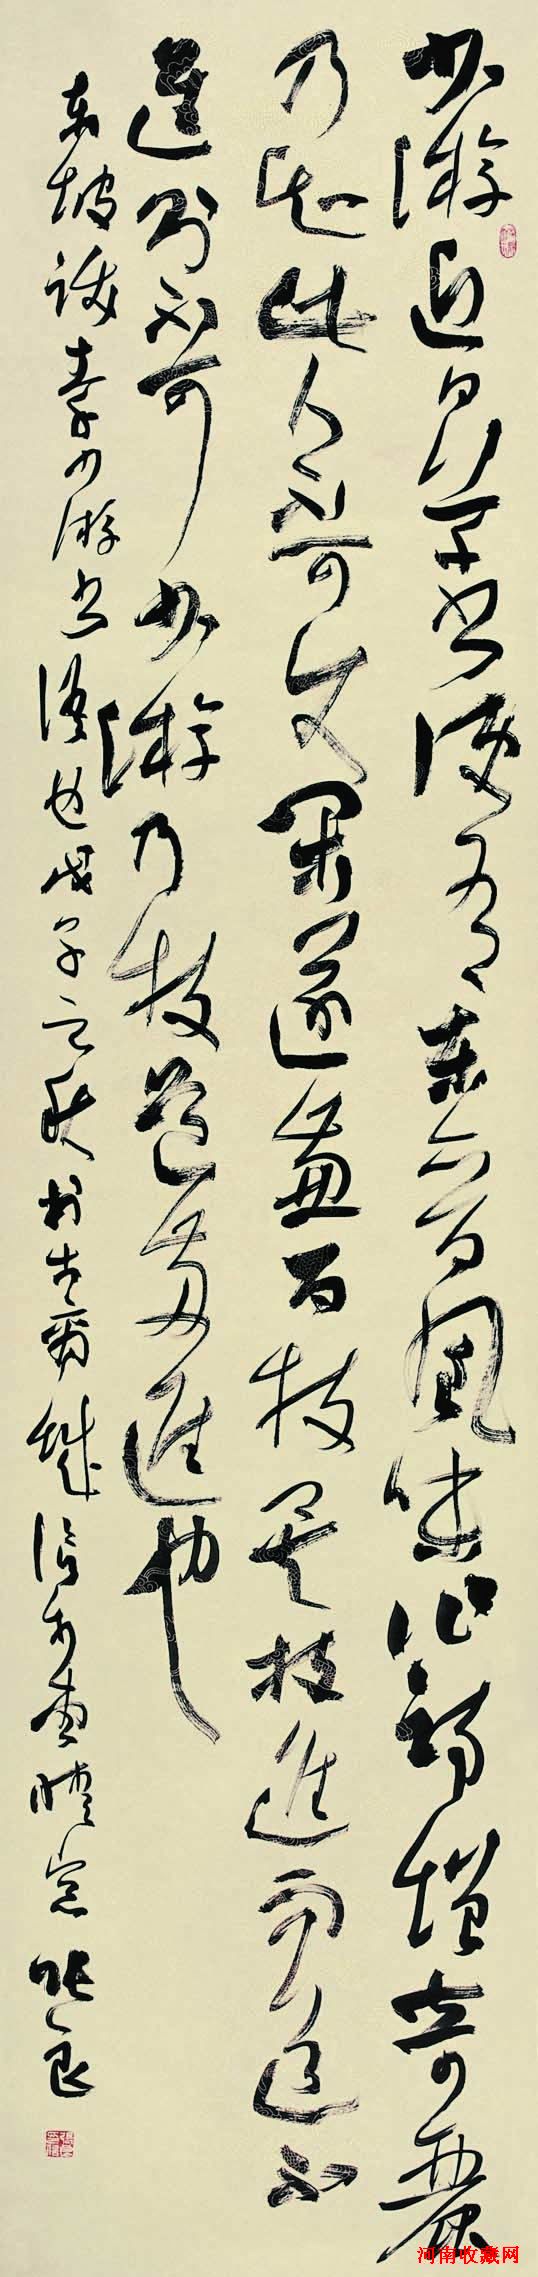 少游近日草書便有東晉風味作詩增奇麗
乃知此人不可使閑遂兼百技矣技進而道不
進則不可少游乃技道兩進也
東坡跋秦少游書語也戊子之秋於古商城晴窗張良
河南收藏网